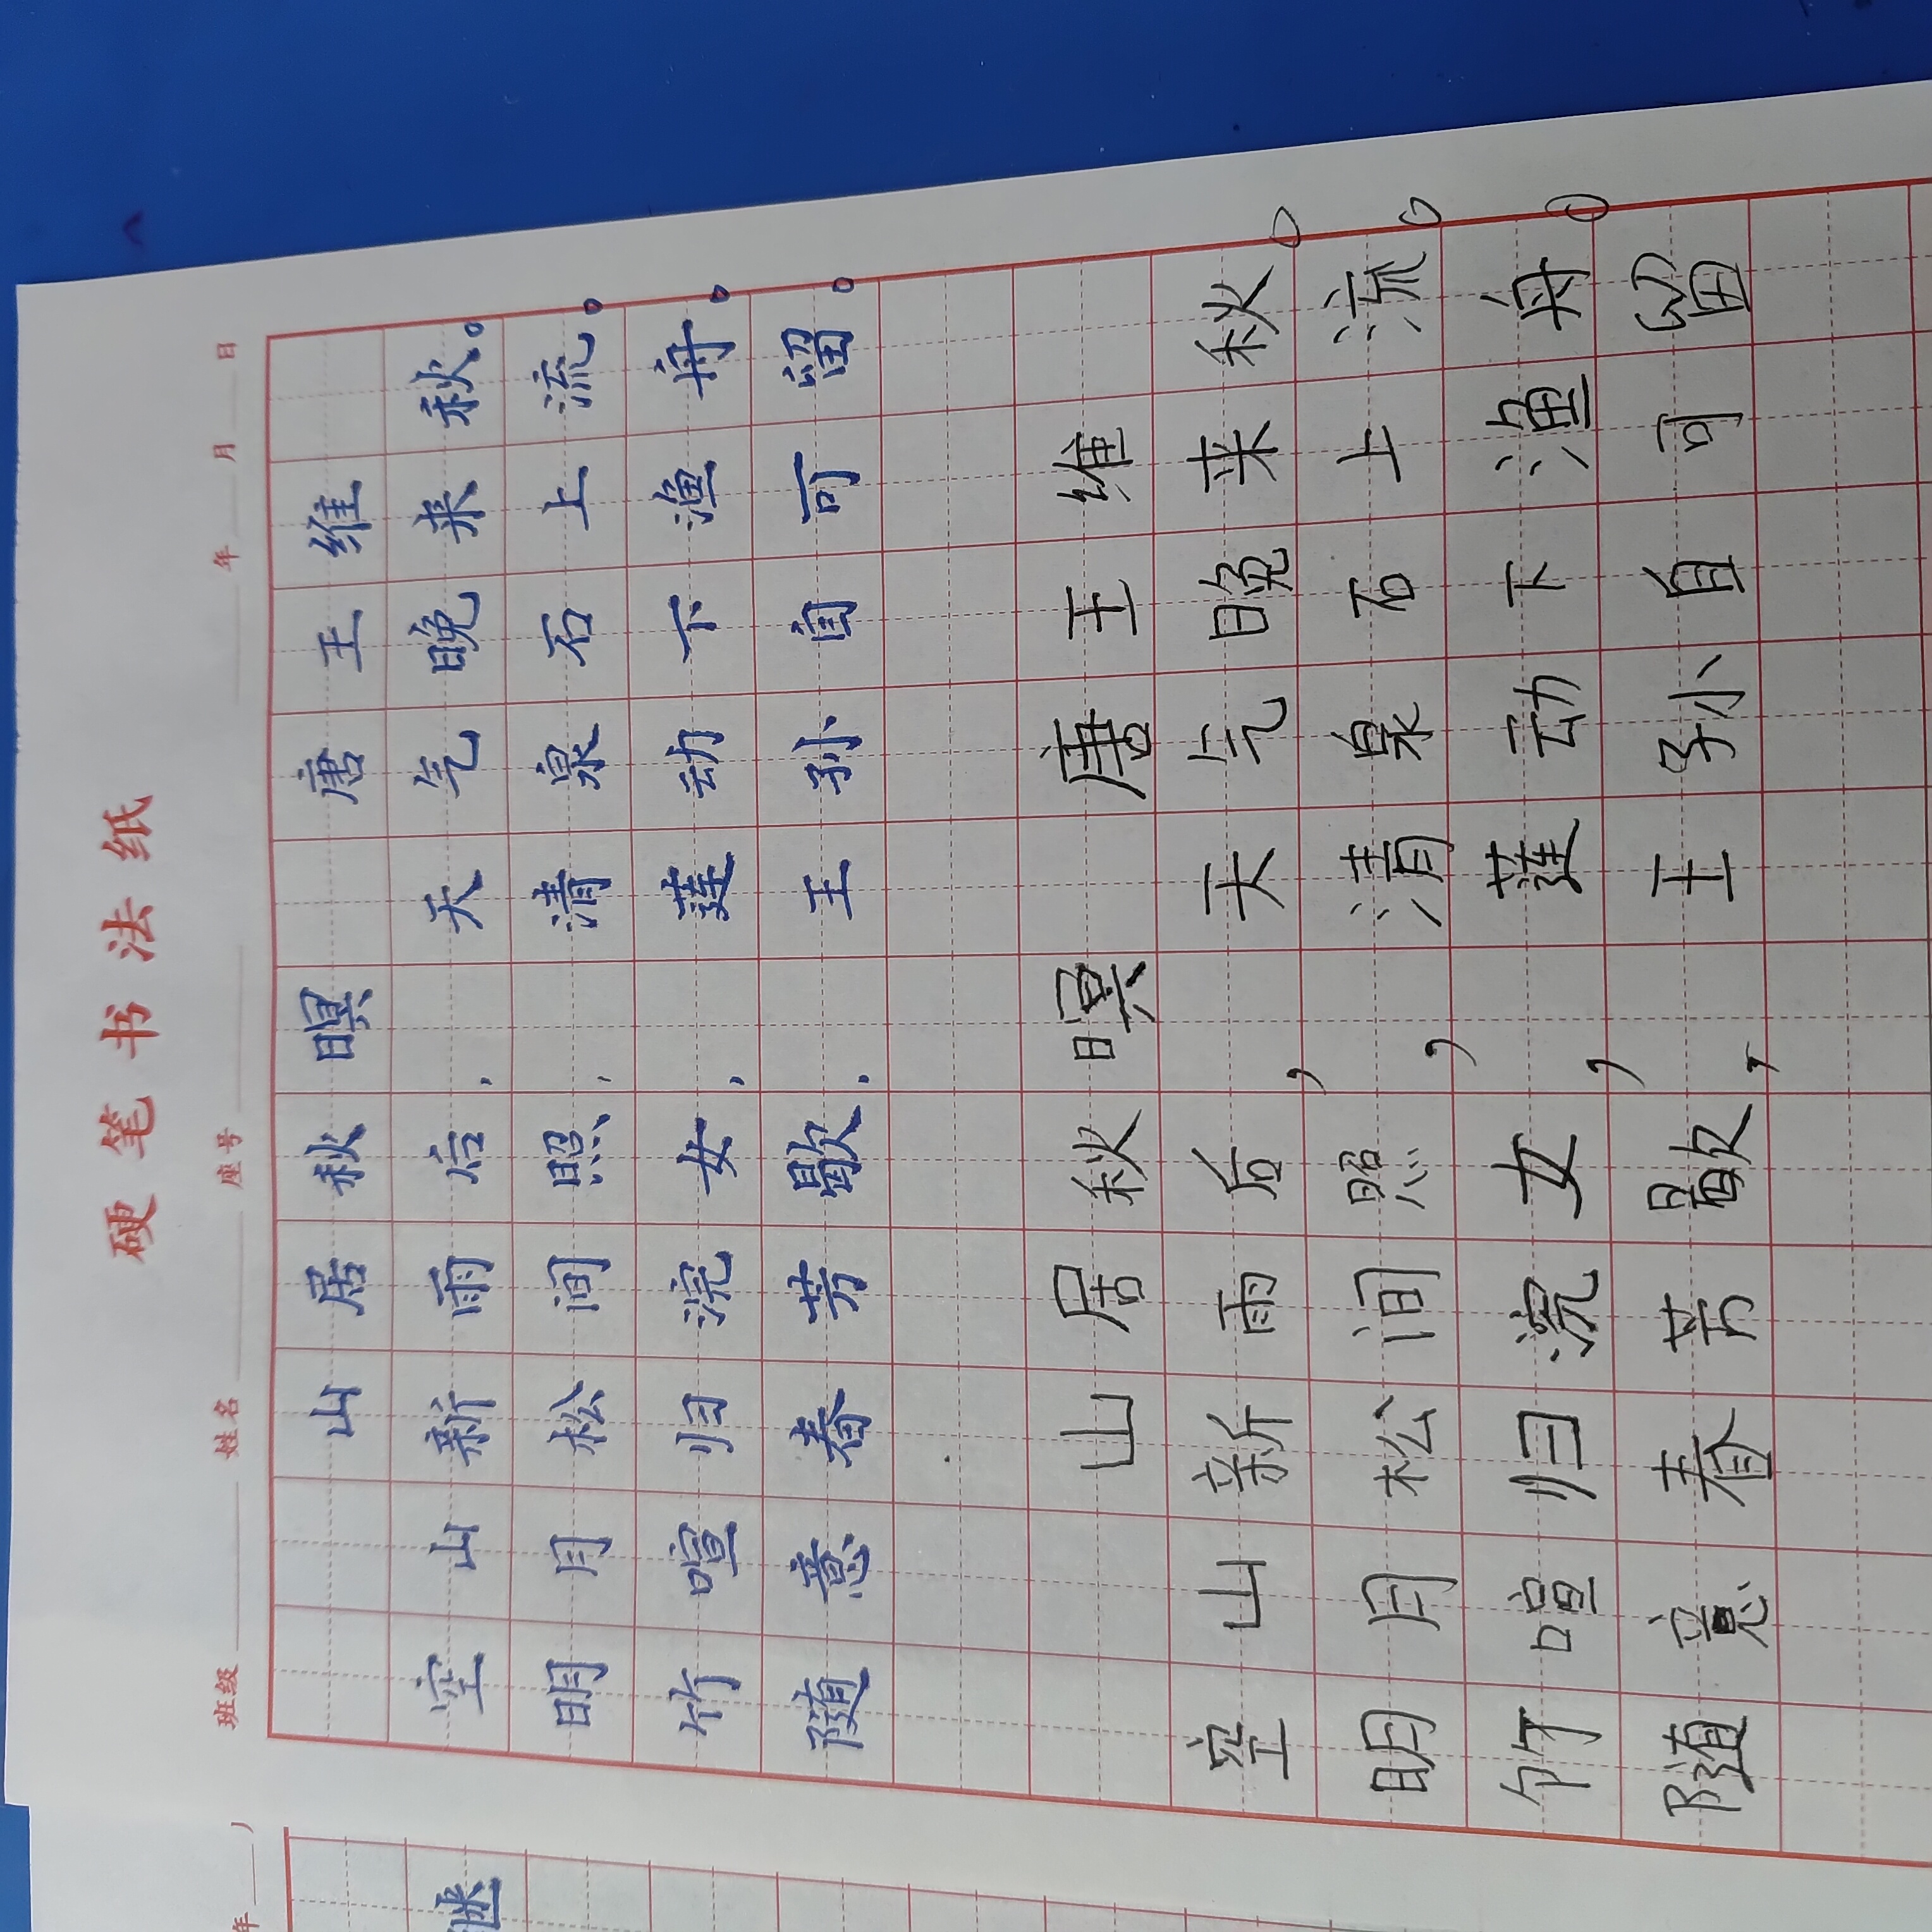 硬笔书法纸
班级 姓名 座号 年 月 日
山居秋暝 唐 王维
空山新雨后，天气晚来秋。
明月松间照，清泉石上流。
竹喧归浣女，莲动下渔舟。
随意春芳歇，王孙自可留。
山居秋暝 唐 王维
空山新雨后，天气晚来秋。
明月松间照，清泉石上流。
竹喧归浣女，莲动下渔舟。
随意春芳歇，王孙自可留
年